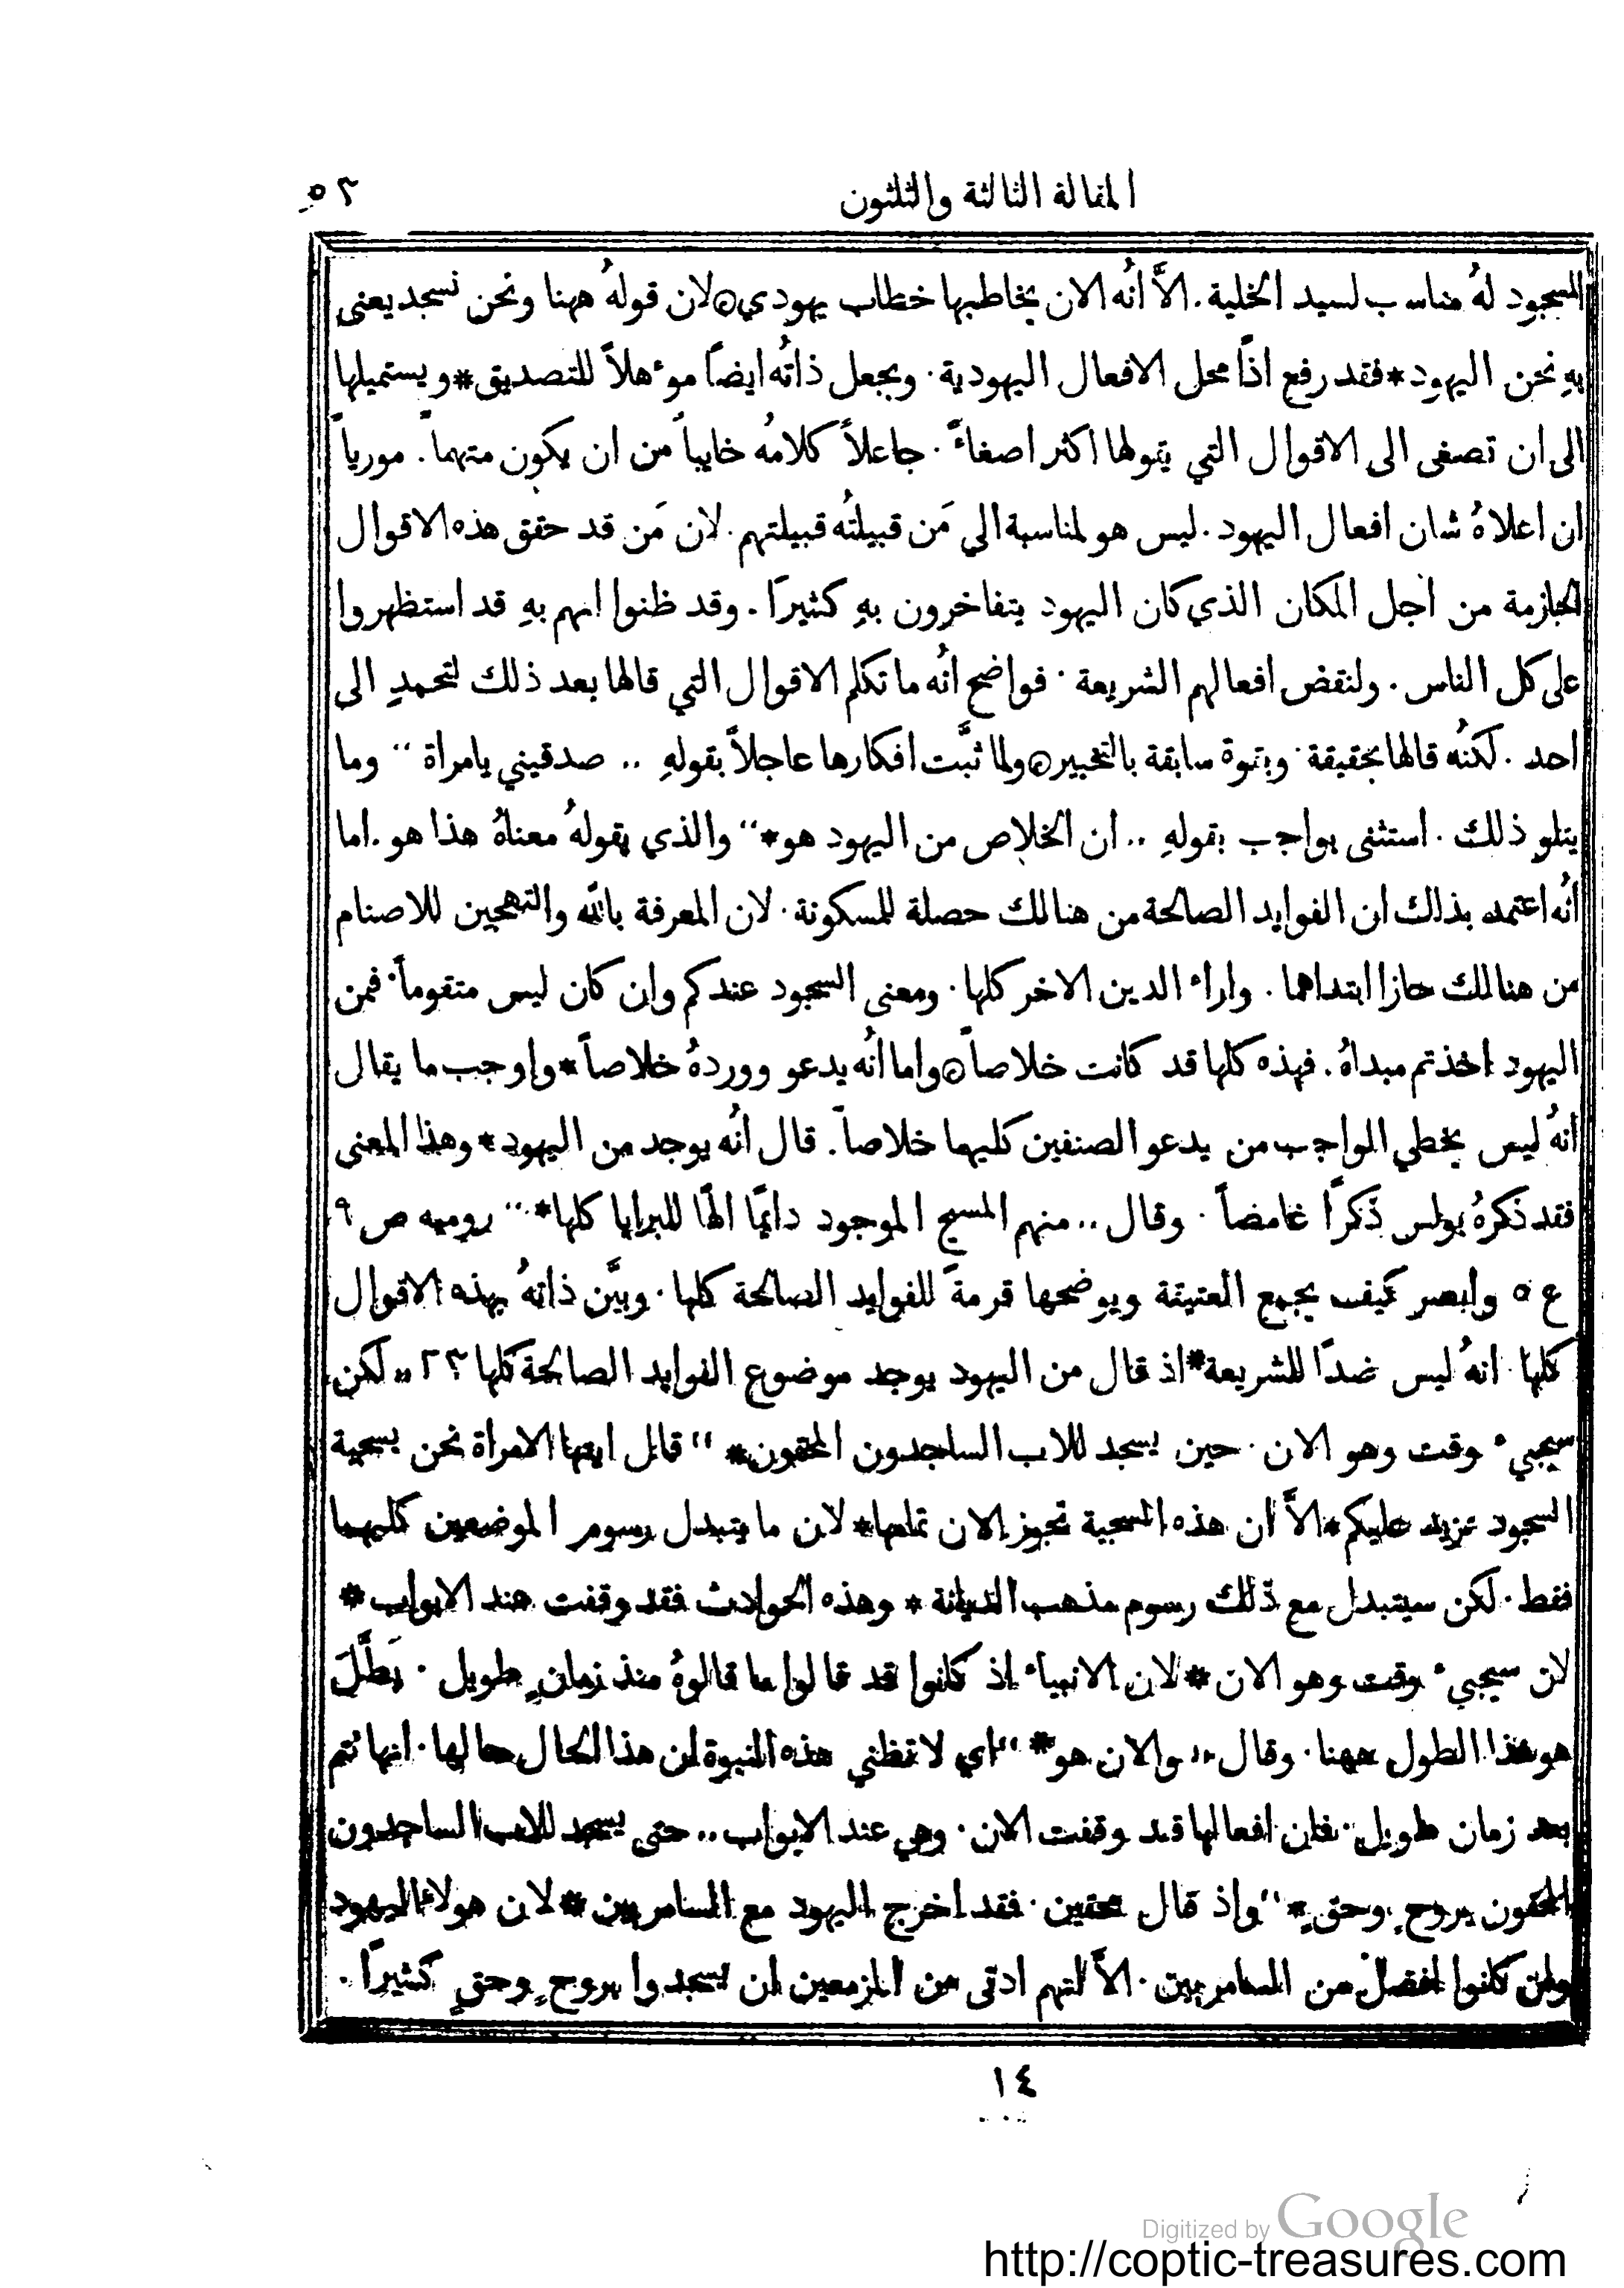 المقالة الثالثة والثلثون ٥٣
المسجود لهُ مناسب لسيد الخلية. الاَّ انُه الان يخاطبها خطاب يهودي۞لان قولهُ ههنا ونحن نسجد يعنى
بهِ نحن اليهود*فقد رفع اذًا محل الافعال اليهودية. ويجعل ذاتُه ايضًا موءهلاً للتصديق*ويستميلها
الى ان تصغى الى الاقوال التي يقولها اكثر اصغاءً. جاعلاً كلامُه خايباً من ان يكون متهماً. مورياً
ان اعلاهُ شان افعال اليهود. ليس هو لمناسبة الي مَن قبيلتُه قبيلتهم. لان مَن قد حقق هذه الاقوال
الجازمة من اجل المكان الذي كان اليهود يتفاخرون بهِ كثيرًا. وقد ظنوا انهم بهِ قد استظهروا
على كل الناس. ولنقض افعالهم الشريعة. فواضح انُه ما تكلم الاقوال التي قالها بعد ذلك لتحمدِ الى
احد. لكنُه قالها بحقيقة. وبقوة سابقة بالتخبير۞ولما ثبَّت افكارها عاجلاً بقولهِ ,, صدقيني يامراة ،، وما
يتلو ذلك. استثنى بواجب بقولهِ ,, ان الخلاص من اليهود هو*،، والذي يقولهُ معناهُ هذا هو. اما
انُه اعتمد بذلك ان الفوايد الصالحة من هنالك حصلة للمسكونة. لان المعرفة بالله والتهجين للاصنام
من هنالك حازا ابتداهما. واراء الدين الاخر كلها. ومعنى السجود عندكم وان كان ليس متقوماً. فمن
اليهود اخذتم مبداهُ. فهذه كلها قد كانت خلاصاً۞واما انُه يدعو ووردهُ خلاصاً*واوجب ما يقال
انهُ ليس يخطي الواجب من يدعو الصنفين كليهما خلاصاً. قال انُه يوجد من اليهود*وهذا المعنى
فقد ذكرهُ بولس ذكرًا غامضاً. وقال ,, منهم المسيح الموجود دايمًا الهًا للبرايا كلها*،، روميه ص ٩
ع ٥ وابصر كيف يجمع العتيقة ويوضحها قرمةً للفوايد الصالحة كلها. وبيَّن ذاتهُ بهذه الاقوال
كلها. انهُ ليس ضدًا للشريعة*اذ قال من اليهود يوجد موضوع الفوايد الصالحة كلها ٢٣ ,, لكن
سيجيء وقت وهو الان. حين يسجد للاب الساجدون المحقون*،، قايل ايتها الامراة نحن بسجية
السجود نزيد عليكم*الاَّ ان هذه السجية تجوز الان تمامها*لان ما يتبدل رسوم الموضعين كليهما
فقط. لكن سيتبدل مع ذلك رسوم مذهب الديانة * وهذه الحوادث فقد وقفت عند الابواب*
لان سيجيء وقت وهو الان*لان الانبياء اذ كانوا قد قالوا ما قالوهُ منذ زمانٍ طويل. بَطَّلَ
هو هذا الطول ههنا. وقال ,, والان هو*،، اي لا تظني هذه النبوة ان هذا الحال حالها. انها تتم
بعد زمان طويل. فان افعالها قد وقفت الان. وهي عند الابواب ,, حتى يسجد للاب الساجدون
المحقون بروحٍ وحقٍ*،، واذ قال محقين. فقد اخرج اليهود مع السامريين*لان هولاء اليهود
وان كانوا افضل من السامريين. الاَّ انهم ادنى من المزمعين ان يسجدوا بروحٍ وحقٍ كثيرًا.
١٤
Digitized by Google
http://coptic-treasures.com